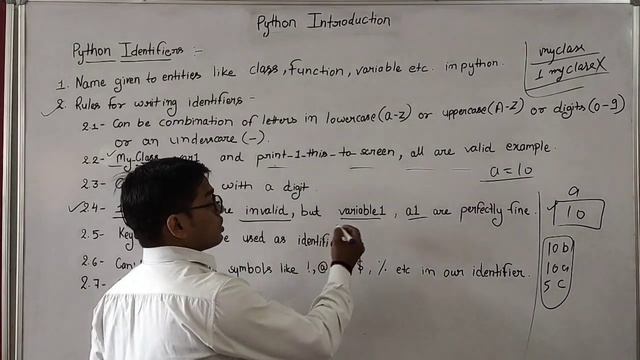 Python Introduction
Python Identifiers :-
1. Name given to entities like class, function, variable etc. in python.
2. Rules for writing identifiers -
2.1- Can be combination of letters in lowercase (a-z) or uppercase (A-Z) or digits (0-9)
or an underscare (-).
2.2- My Class, var1 and print-1-this-to-screen, all are valid example.
2.3- with a digit
2.4- are invalid, but variable1, a1 are perfectly fine.
2.5- Key used as identifi
2.6- Can symbols like !, @ $, % etc in our identifier.
2.7-
myclass
1 myclass X
a = 10
a
10
10 b
10 a
5 c